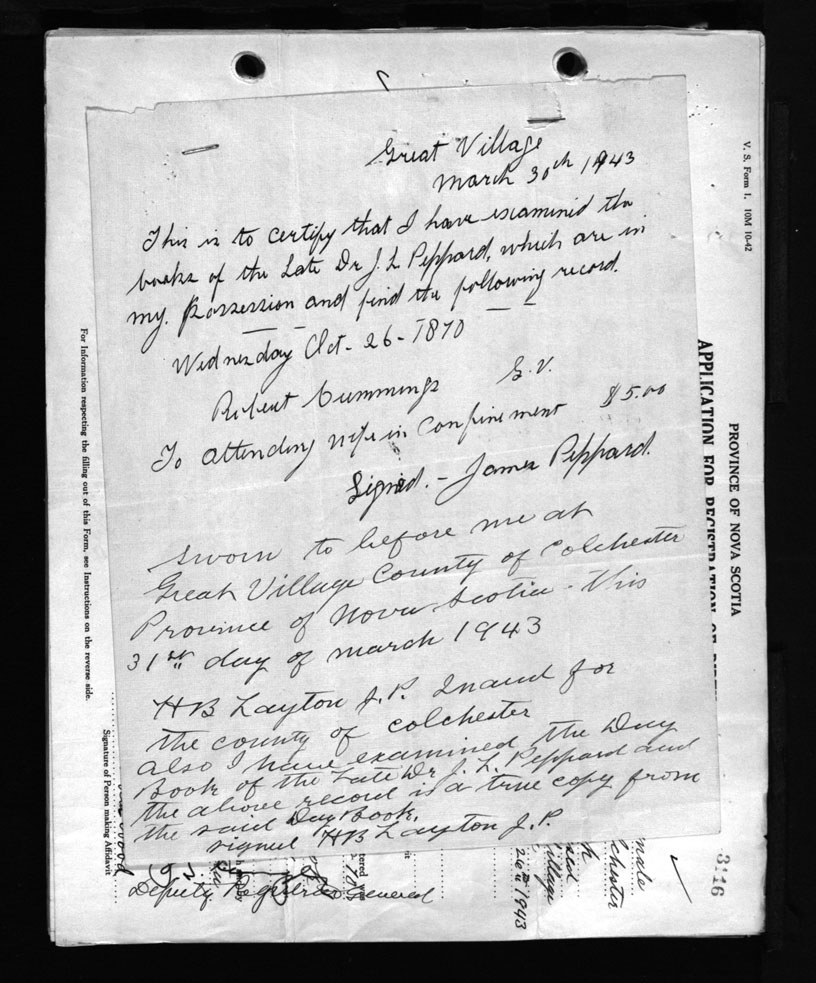 Great Village
March 30th 1943
This is to certify that I have examined the
books of the Late Dr J. L Peppard, which are in
my. Possession and find the following record.
Wednesday Oct - 26 - 1870
Robert Cummings G. V.
To attending wife in Confinement $5.00
Signed. - James Peppard.
Sworn to before me at
Great Village County of Colchester
Province of Nova Scotia - this
31st day of March 1943
HB Layton J. P. In and for
the county of Colchester
also I have examined the Day
Book of the Late Dr J. L. Peppard and
the above record is a true copy from
the said Day Book.
signed HB Layton J. P.
Deputy Registrar General
V. S. Form 1. 10M 10-42
PROVINCE OF NOVA SCOTIA
APPLICATION FOR REGISTRATION OF
For Information respecting the filling out of this Form, see Instructions on the reverse side.
Signature of Person making Affidavit
male
26th 1943